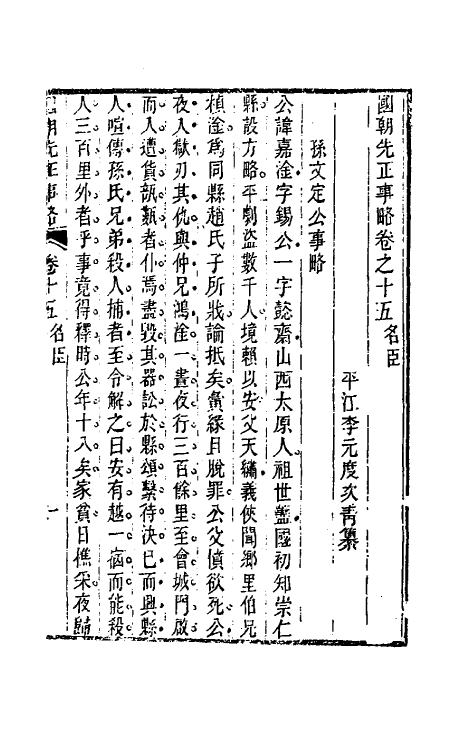 國朝先正事略卷之十五 名臣
平江李元度次青纂
孫文定公事略
公諱嘉淦字錫公一字懿齋山西太原人祖世藎國初知崇仁
縣設方略平劇盜數千人境賴以安父天繡義俠聞鄉里伯兄
楨淦為同縣趙氏子所戕論抵矣夤緣且脫罪公父憤欲死公
夜入獄刃其仇與仲兄鴻淦一晝夜行三百餘里至會城門啟
而入遭貨瓿甊者仆焉盡毀其器訟於縣頌繫待決已而興縣
人喧傳孫氏兄弟殺人捕者至令解之曰安有越一宿而能殺
人三百里外者乎事竟得釋時公年十八矣家貧日樵采夜歸
國朝先正事略 卷十五 名臣 一